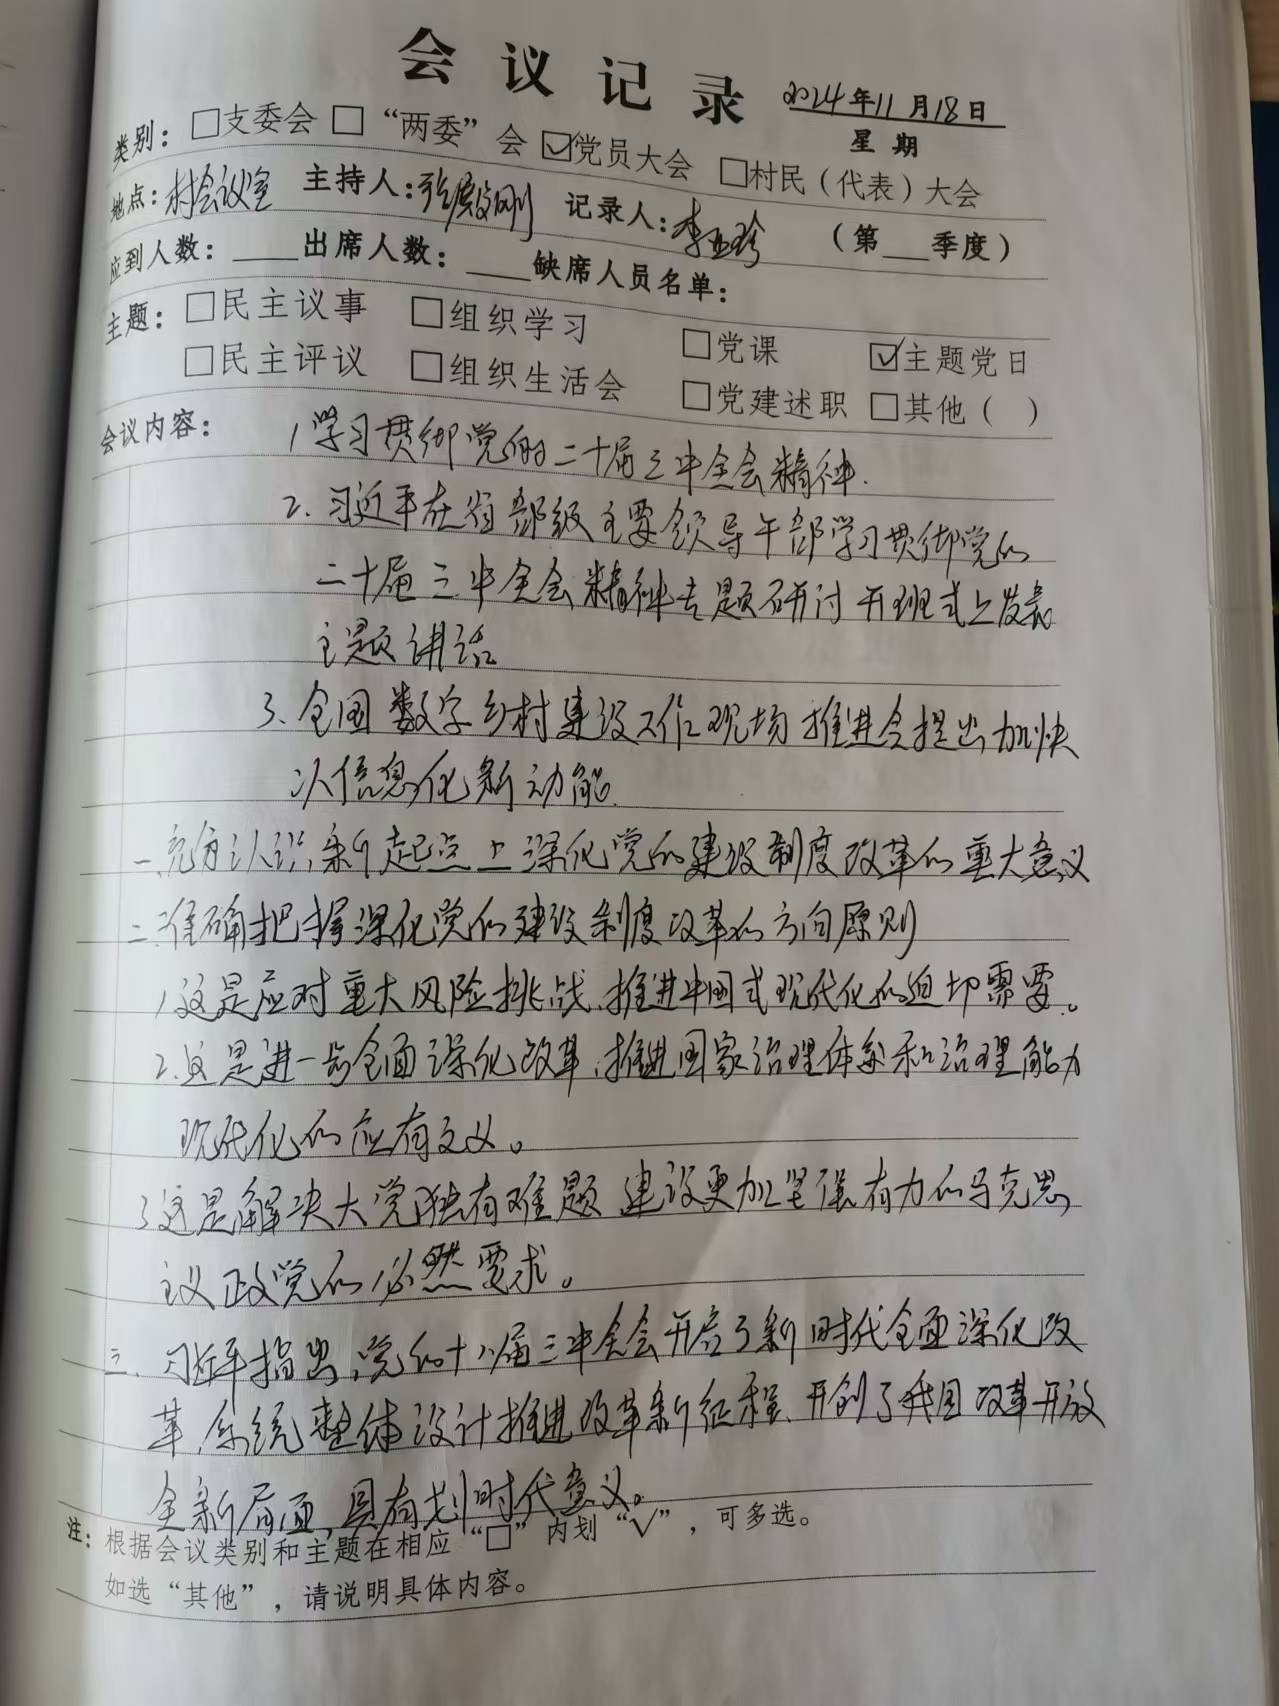 会议记录 2024年11月18日
星期
类别：□支委会 □“两委”会 ☑党员大会 □村民（代表）大会
地点：村会议室 主持人：张殿刚 记录人：李亚珍 （第___季度）
应到人数：____出席人数：____缺席人员名单：
主题：□民主议事 □组织学习 □党课 ☑主题党日
□民主评议 □组织生活会 □党建述职 □其他（ ）
会议内容： 1学习贯彻党的二十届三中全会精神.
2.习近平在省部级主要领导干部学习贯彻党的
二十届三中全会精神专题研讨开班式上发表
主题讲话
3、全国数字乡村建设工作现场推进会提出加快
以信息化新动能.
一、充分认识,新起点上深化党的建设制度改革的重大意义
二、准确把握深化党的建设制度改革的方向原则
1、这是应对重大风险挑战、推进中国式现代化的迫切需要。
2、这是进一步全面深化改革、推进国家治理体系和治理能力
现代化的应有之义。
3这是解决大党独有难题 建设更加坚强有力的马克思
主义政党的必然要求。
三、习近平指出,党的十八届三中全会开启了新时代全面深化改
革、系统整体设计推进改革新征程、开创了我国改革开放
全新局面,具有划时代意义。
注：根据会议类别和主题在相应“□”内划“√”，可多选。
如选“其他”，请说明具体内容。